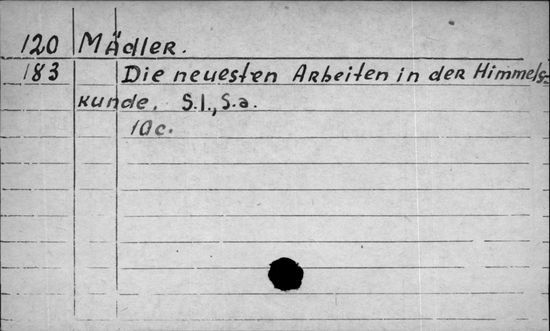 120 Mädler.
183 Die neuesten Arbeiten in der Himmels=
kunde. S.l., S.a.
10 c.